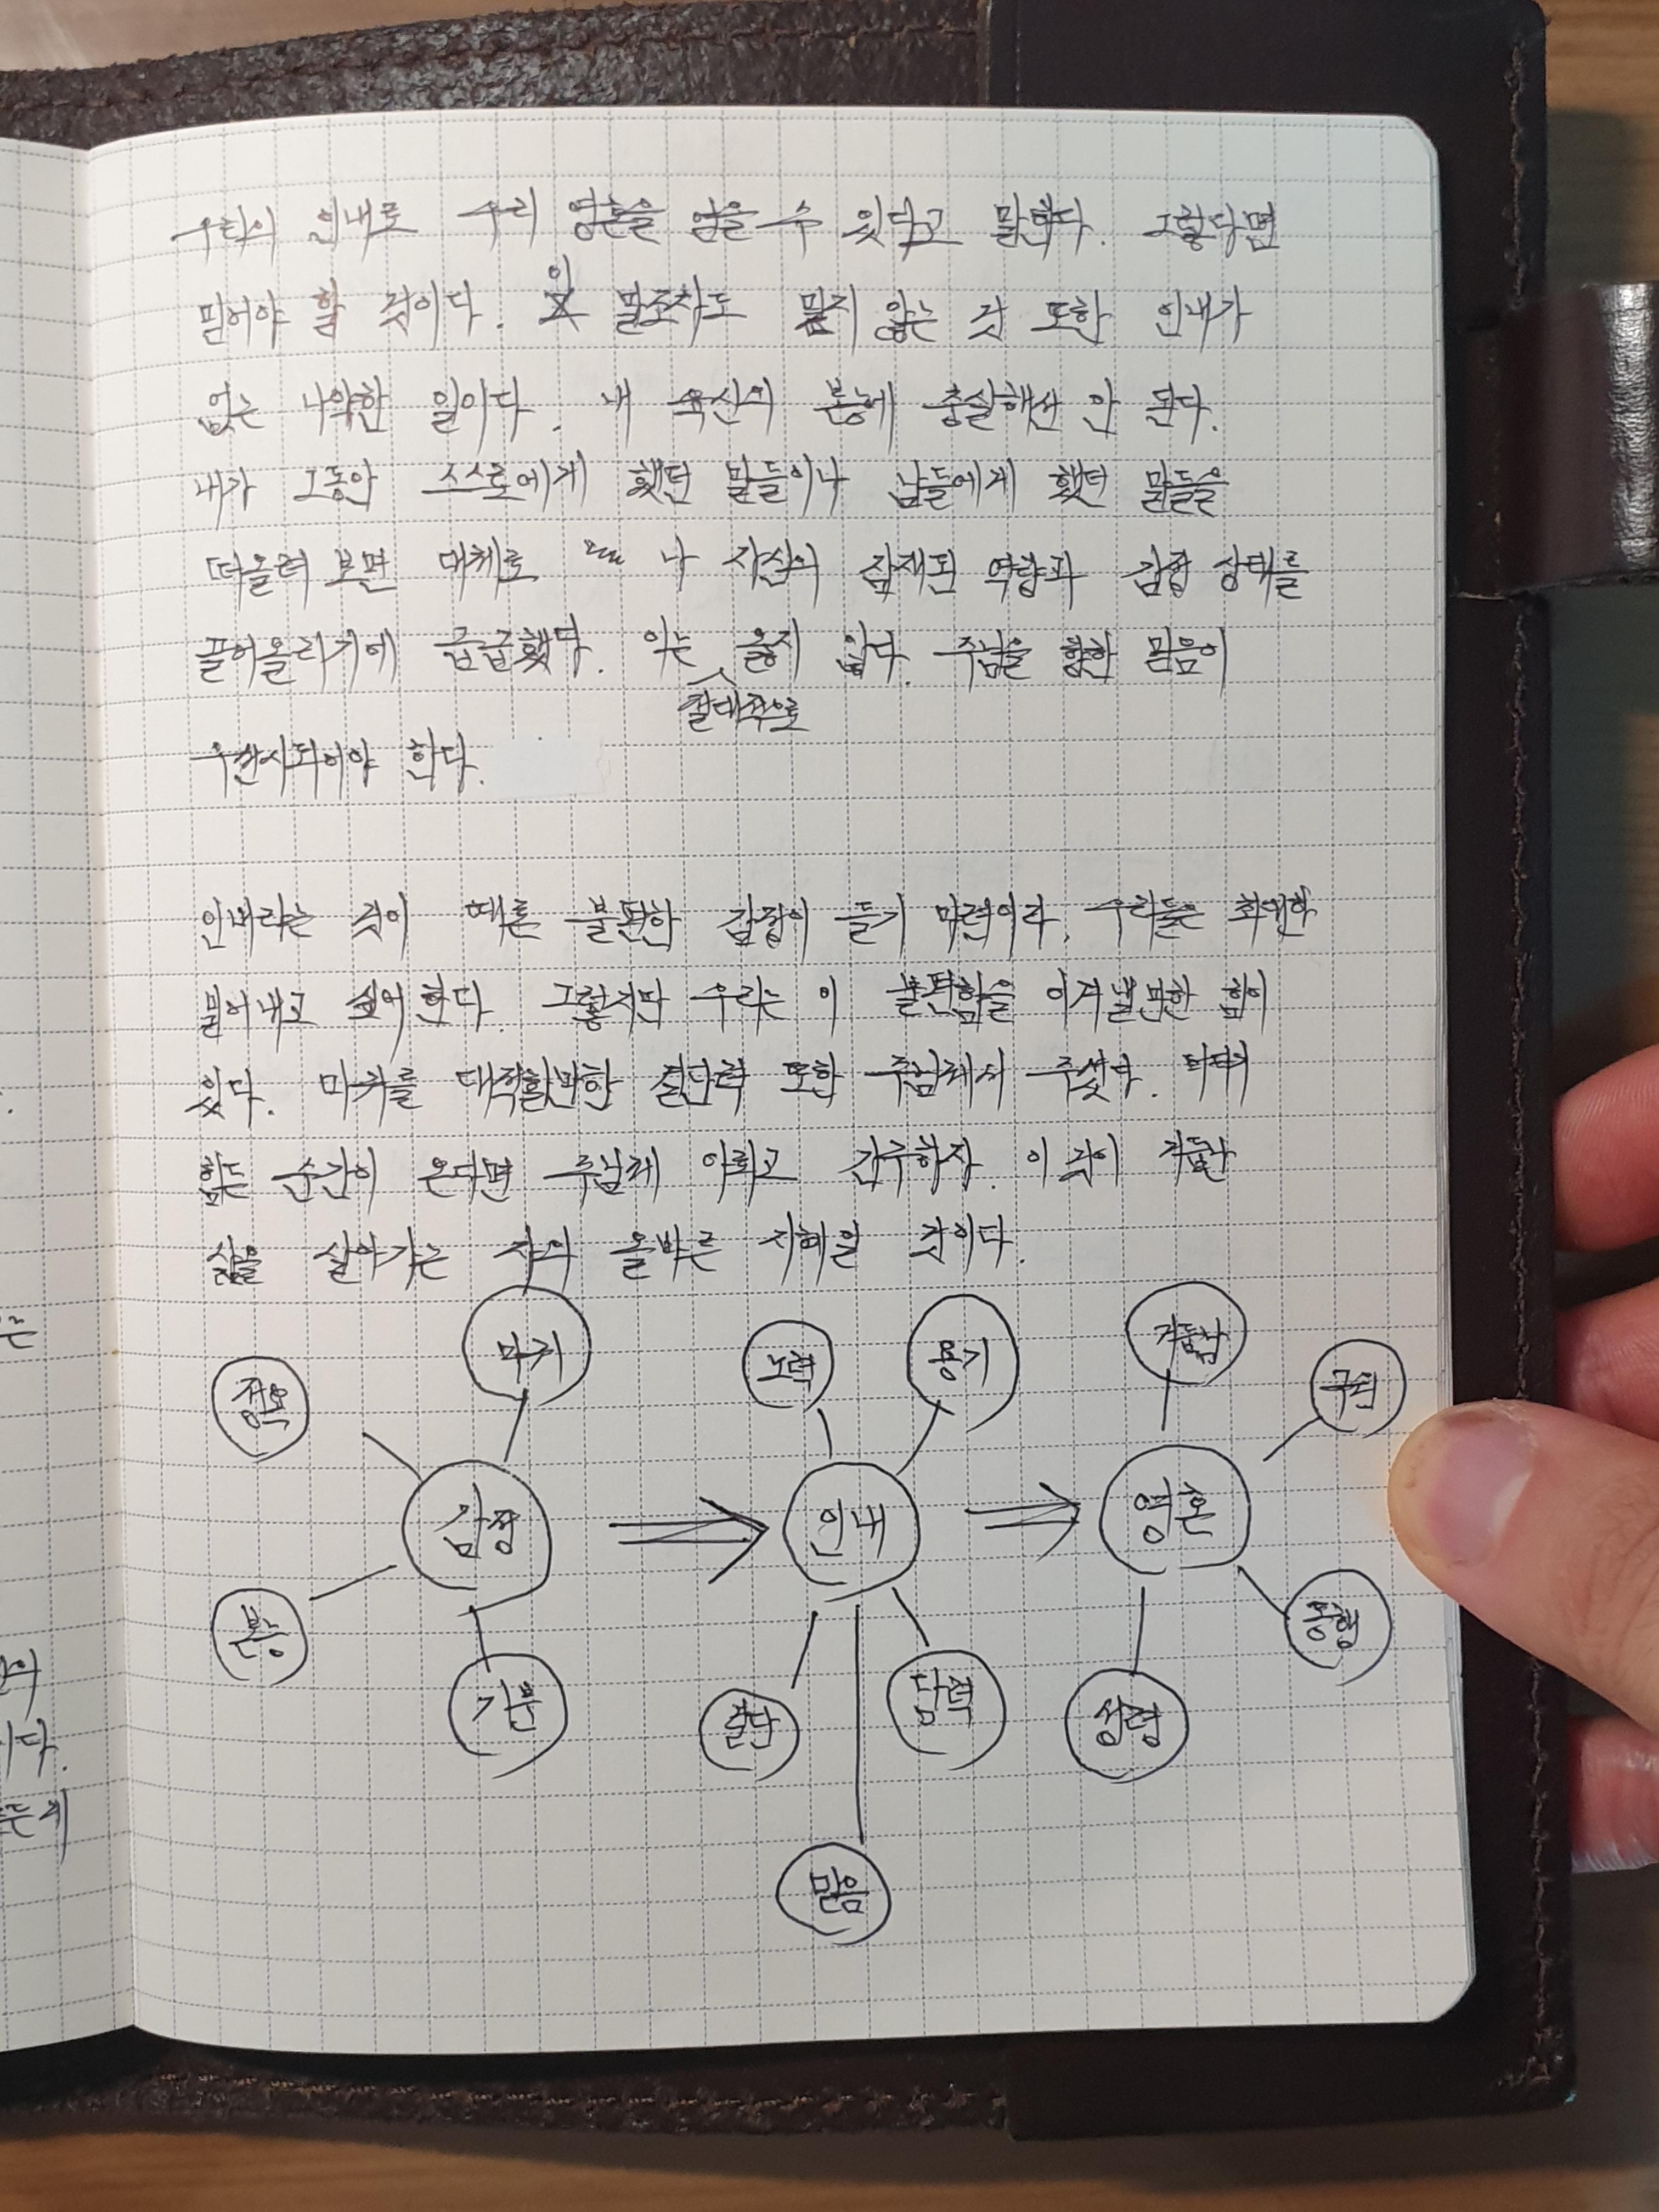 우리의 인내로 우리 영혼을 얻을 수 있다고 말한다. 그렇다면
믿어야 할 것이다. 이 말조차도 믿지 않는 것 또한 인내가
없는 나약한 일이다. 내 육신의 본능에 충실해선 안 된다.
내가 그동안 스스로에게 했던 말들이나 남들에게 했던 말들을
떠올려 보면 대체로 나 자신의 잠재된 역량과 감정 상태를
끌어올리기에 급급했다. 이는 옳지 않다. 주님을 향한 믿음이
절대적으로
우선시되어야 한다.
인내라는 것이 때론 불편한 감정이 들기 마련이라, 우리들은
밀어내고 싶어 한다. 그렇지만 우리는 이 불편함을 이겨낼만한 힘이
있다. 마귀를 대적할만한 결단력 또한 주님께서 주셨다. 마귀가
힘든 순간이 온다면 주님께 아뢰고 간구하자. 이것이 거듭난
삶을 살아가는 자의 올바른 지혜일 것이다.
정욕
마귀
노력
용기
거듭남
구원
감정
인내
영혼
본능
기분
결단
담력
성령
동행
믿음
는
의
이다.